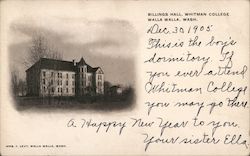 BILLINGS HALL, WHITMAN COLLEGE
WALLA WALLA, WASH.
Dec. 30 1905
This is the boy's
dormitory. If
you ever attend
Whitman College
you may go there.
A Happy New Year to you.
Your sister Ell
MRS. T. LEVY, WALLA WALLA, WASH.